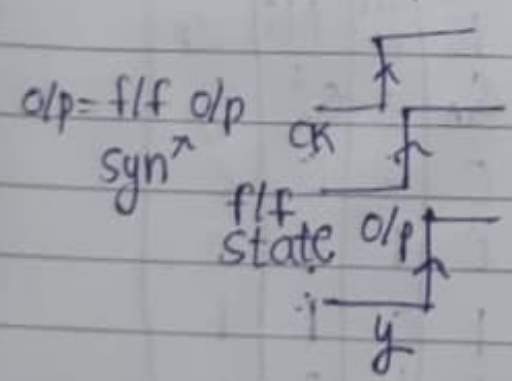 o/p = f/f o/p
synⁿ
CK
f/f
state o/p
y